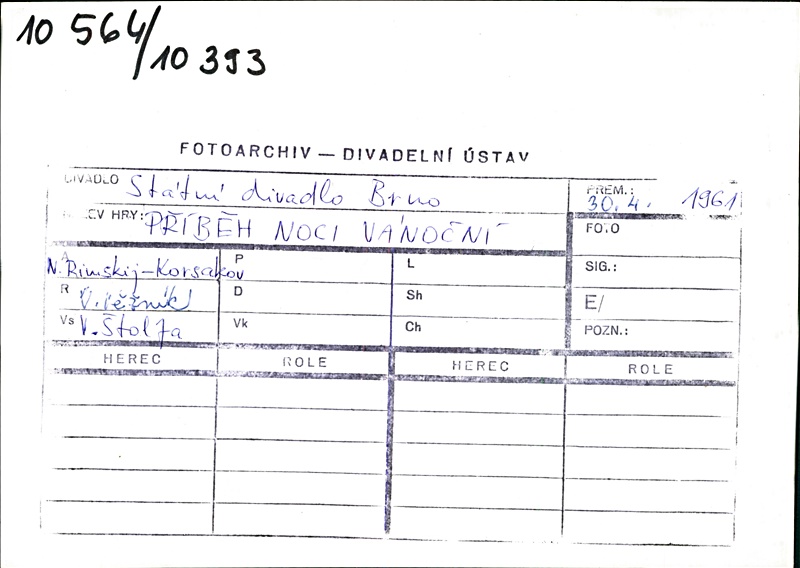 10 564/
10 393
FOTOARCHIV — DIVADELNÍ ÚSTAV
DIVADLO Státní divadlo Brno
PREM.: 30. 4. 1961
NÁZEV HRY: PŘÍBĚH NOCI VÁNOČNÍ
FOTO
A N. Rimskij-Korsakov P L
SIG.:
R V. Věžník D Sh
E/
Vs V. Štolfa Vk Ch
POZN.:
HEREC ROLE HEREC ROLE